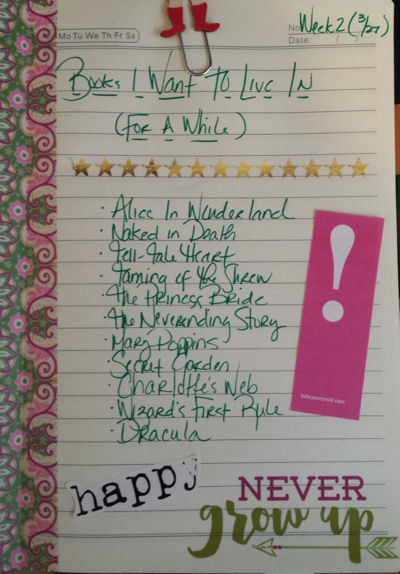 Mo Tu We Th Fr Sa
No Week 2 (3/27)
Date: / /
Books I Want To Live In
(For A While)
· Alice In Wonderland
· Naked in Death
· Tell-Tale Heart
· Taming of the Shrew
· The Princess Bride
· The Neverending Story
· Mary Poppins
· Secret Garden
· Charlotte's Web
· Wizard's First Rule
· Dracula
!
happy
NEVER
grow up